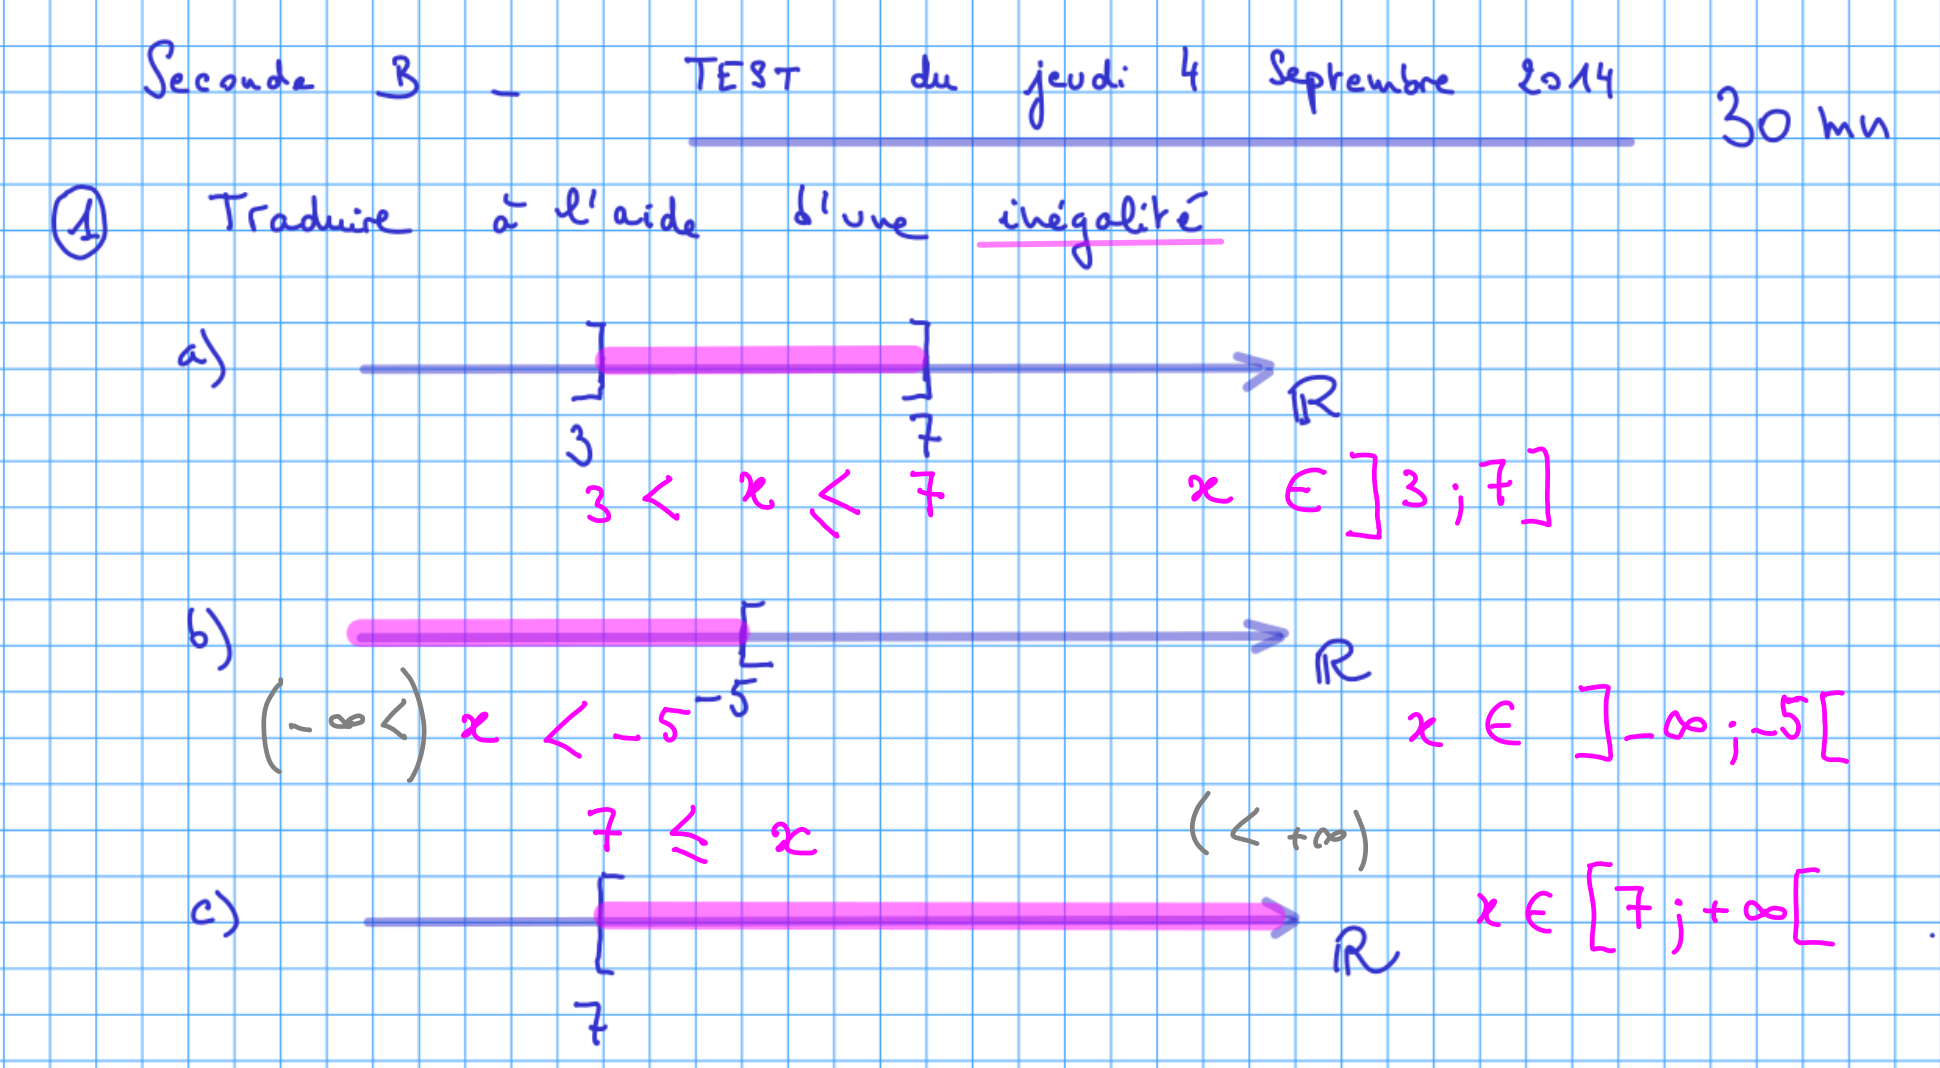 Seconde B - TEST du jeudi 4 Septembre 2014 30 mn
① Traduire à l'aide d'une inégalité
a) ] ] ℝ
3 7
3 < x ⩽ 7 x ∈ ]3 ; 7]
b) [ ℝ
-5
(-∞ <) x < -5 x ∈ ]-∞ ; -5[
7 ⩽ x (< +∞)
c) [ ℝ x ∈ [7 ; +∞[
7